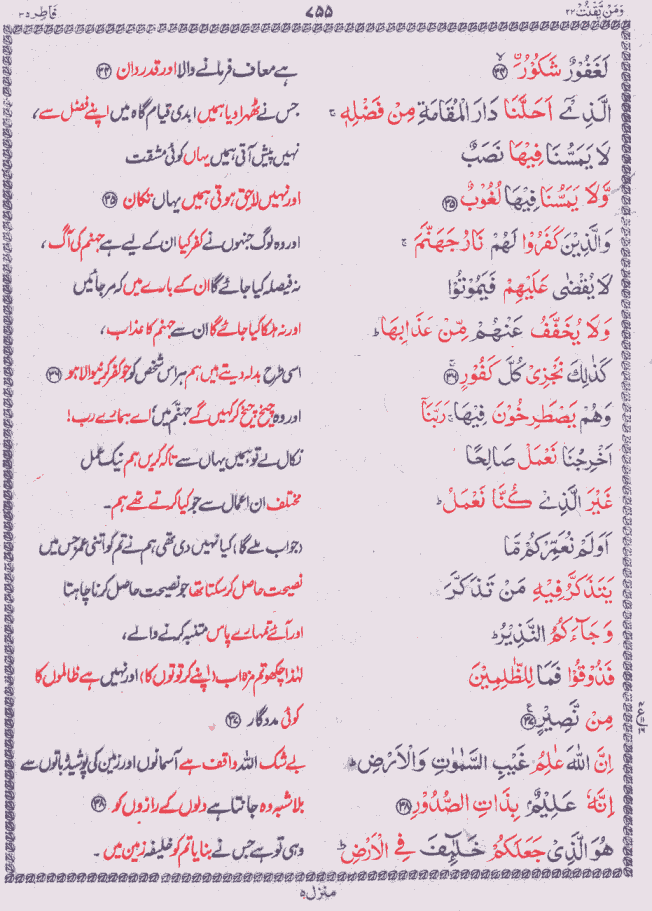 وَمَنْ يَّقْنُتْ ٢٢
٧٥٥
فَاطِر ٣٥
لَغَفُوْرٌ شَكُوْرُ ۟ۙ ﴿٣٤﴾
ہے معاف فرمانے والا اور قدردان ﴿٣٤﴾
الَّذِىْۤ اَحَلَّنَا دَارَ الْمُقَامَةِ مِنْ فَضْلِهٖ ۚ
جس نے ٹھہرا دیا ہمیں ابدی قیام گاہ میں اپنے فضل سے،
لَا يَمَسُّنَا فِيْهَا نَصَبٌ
نہیں پیش آتی ہمیں یہاں کوئی مشقت
وَّلَا يَمَسُّنَا فِيْهَا لُغُوْبٌ ﴿٣٥﴾
اور نہیں لاحق ہوتی ہمیں یہاں تکان ﴿٣٥﴾
وَالَّذِيْنَ كَفَرُوْا لَهُمْ نَارُ جَهَنَّمَ ۚ
اور وہ لوگ جنہوں نے کفر کیا ان کے لیے ہے جہنم کی آگ،
لَا يُقْضٰى عَلَيْهِمْ فَيَمُوْتُوْا
نہ فیصلہ کیا جائے گا ان کے بارے میں کہ مر جائیں
وَلَا يُخَفَّفُ عَنْهُمْ مِّنْ عَذَابِهَا ؕ
اور نہ ہلکا کیا جائے گا ان سے جہنم کا عذاب،
كَذٰلِكَ نَجْزِىْ كُلَّ كَفُوْرٍ ۚ ﴿٣٦﴾
اسی طرح بدلہ دیتے ہیں ہم ہر اس شخص کو جو کفر کرنیوالا ہو ﴿٣٦﴾
وَهُمْ يَصْطَرِخُوْنَ فِيْهَا ۚ رَبَّنَاۤ
اور وہ چیخ چیخ کر کہیں گے جہنم میں "اے ہمارے رب!
اَخْرِجْنَا نَعْمَلْ صَالِحًا
نکال لے تو ہمیں یہاں سے تاکہ کریں ہم نیک عمل
غَيْرَ الَّذِىْ كُنَّا نَعْمَلُ ؕ
مختلف ان اعمال سے جو کیا کرتے تھے ہم۔
اَوَلَمْ نُعَمِّرْكُمْ مَّا
(جواب ملے گا) کیا نہیں دی تھی ہم نے تم کو اتنی عمر جس میں
يَتَذَكَّرُ فِيْهِ مَنْ تَذَكَّرَ
نصیحت حاصل کر سکتا تھا جو نصیحت حاصل کرنا چاہتا
وَجَآءَكُمُ النَّذِيْرُ ؕ
اور آئے تمہارے پاس متنبہ کرنے والے،
فَذُوْقُوْا فَمَا لِلظّٰلِمِيْنَ
لہٰذا چکھو تم مزہ اب (اپنے کرتوتوں کا) اور نہیں ہے ظالموں کا
مِنْ نَّصِيْرٍ ﴿٣٧﴾
کوئی مددگار ﴿٣٧﴾
اِنَّ اللّٰهَ عٰلِمُ غَيْبِ السَّمٰوٰتِ وَالْاَرْضِ ؕ
بے شک اللہ واقف ہے آسمانوں اور زمین کی پوشیدہ باتوں سے
اِنَّهٗ عَلِيْمٌۢ بِذَاتِ الصُّدُوْرِ ﴿٣٨﴾
بلاشبہ وہ جانتا ہے دلوں کے رازوں کو ﴿٣٨﴾
هُوَ الَّذِىْ جَعَلَكُمْ خَلٰٓئِفَ فِى الْاَرْضِ ؕ
وہی تو ہے جس نے بنایا تم کو خلیفہ زمین میں۔
منزل ۵